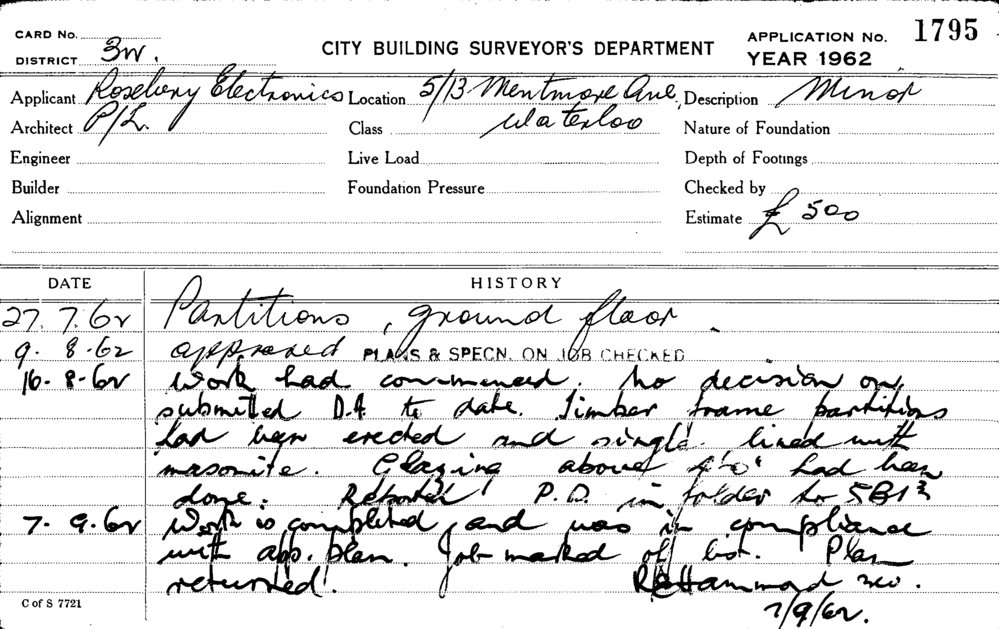 CARD No.
DISTRICT 3W.
CITY BUILDING SURVEYOR'S DEPARTMENT
APPLICATION No. 1795
YEAR 1962
Applicant Rosebery Electronics Location 5/13 Mentmore Ave, Description Minor
Architect P/L. Class Waterloo Nature of Foundation
Engineer Live Load Depth of Footings
Builder Foundation Pressure Checked by
Alignment Estimate £ 500
DATE HISTORY
27. 7. 62 Partitions, ground floor.
9. 8. 62 approved PLANS & SPECN. ON JOB CHECKED
16. 8. 62 Work had commenced. No decision on
submitted D.A to date. Timber frame partitions
had been erected and single lined with
masonite. Glazing above had been
done. Reported P.D. in folder
7. 9. 62 Work is completed and was in compliance
with app. plan. Job marked off list. Plan
returned. 3W.
7/9/62.
C of S 7721